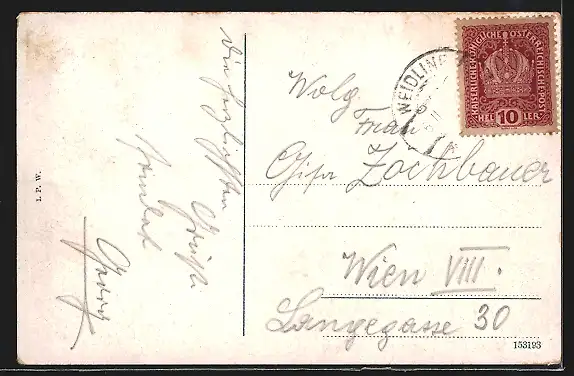 Die herzlichsten
Grüße
sendet
Georg
I. P. W.
KAISERLICHE KÖNIGLICHE ÖSTERREICHISCHE POST
HEL 10 LER
WEIDLING
Wolg.
Frau
Zochbauer
Wien VIII.
Langegasse 30
153193